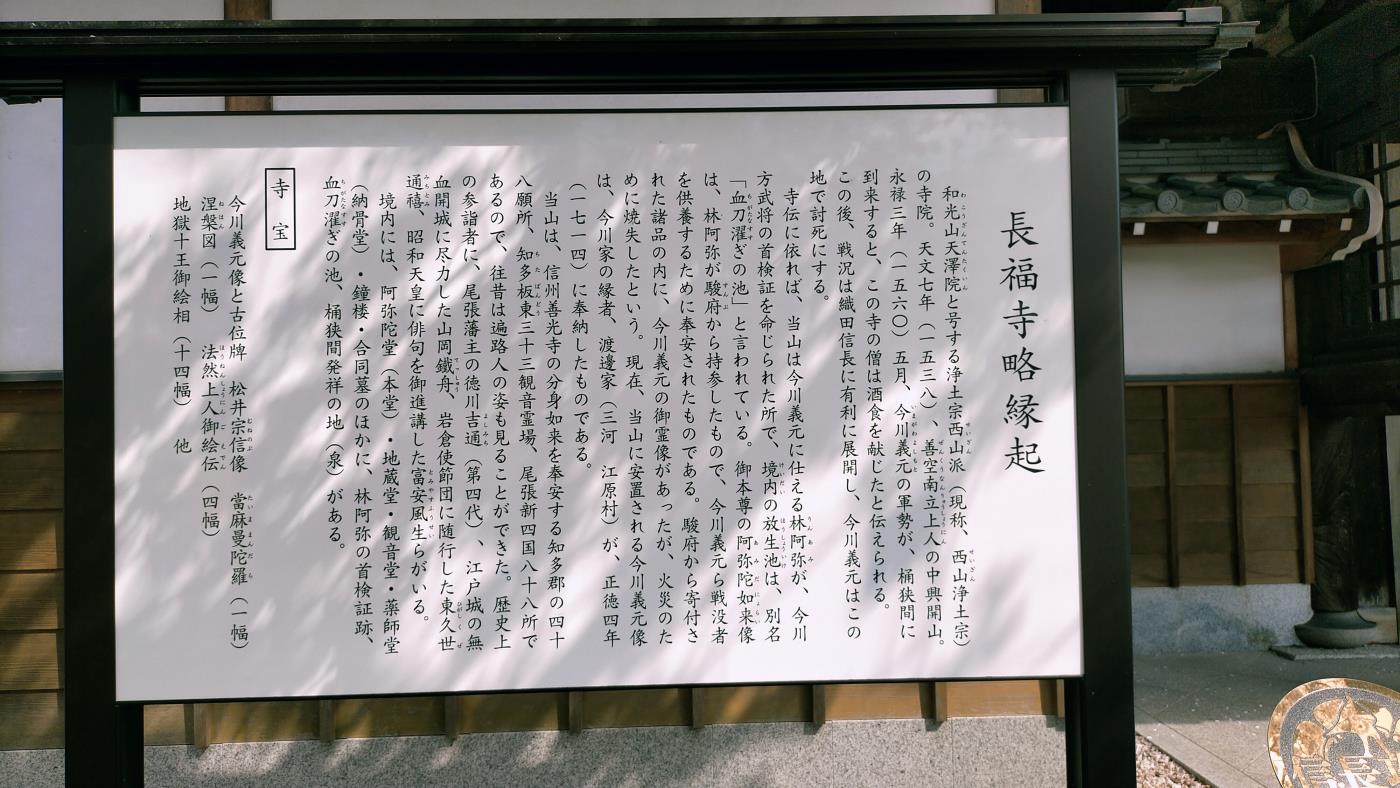 長福寺略縁起
和光山天澤院と号する浄土宗西山派（現称、西山浄土宗）
の寺院。天文七年（一五三八）、善空南立上人の中興開山。
永禄三年（一五六〇）五月、今川義元の軍勢が、桶狭間に
到来すると、この寺の僧は酒食を献じたと伝えられる。
この後、戦況は織田信長に有利に展開し、今川義元はこの
地で討死にする。
寺伝に依れば、当山は今川義元に仕える林阿弥が、今川
方武将の首検証を命じられた所で、境内の放生池は、別名
「血刀濯ぎの池」と言われている。御本尊の阿弥陀如来像
は、林阿弥が駿府から持参したもので、今川義元ら戦没者
を供養するために奉安されたものである。駿府から寄付さ
れた諸品の内に、今川義元の御霊像があったが、火災のた
めに焼失したという。現在、当山に安置される今川義元像
は、今川家の縁者、渡邊家（三河　江原村）が、正徳四年
（一七一四）に奉納したものである。
当山は、信州善光寺の分身如来を奉安する知多郡の四十
八願所、知多板東三十三観音霊場、尾張新四国八十八所で
あるので、往昔は遍路人の姿も見ることができた。歴史上
の参詣者に、尾張藩主の徳川吉通（第四代）、江戸城の無
血開城に尽力した山岡鐵舟、岩倉使節団に随行した東久世
通禧、昭和天皇に俳句を御進講した富安風生らがいる。
境内には、阿弥陀堂（本堂）・地蔵堂・観音堂・薬師堂
（納骨堂）・鐘楼・合同墓のほかに、林阿弥の首検証跡、
血刀濯ぎの池、桶狭間発祥の地（泉）がある。
寺宝
今川義元像と古位牌　松井宗信像　當麻曼陀羅（一幅）
涅槃図（一幅）　法然上人御絵伝（四幅）
地獄十王御絵相（十四幅）　他
長